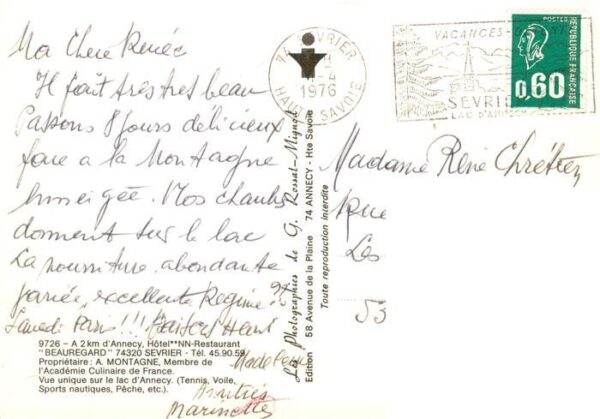 Ma Chere Renée
Il fait très tres beau
Passons 8 jours délicieux
face a la Montagne
enneigée. Nos chambres
donnent sur le lac
La nourriture, abondante
variée, excellente Régime
Samedi Paris !!! Baisers
Amitiés
Marinette
9726 - A 2 km d'Annecy, Hôtel**NN-Restaurant
"BEAUREGARD" 74320 SEVRIER - Tél. 45.90.59
Propriétaire : A. MONTAGNE, Membre de
l'Académie Culinaire de France.
Vue unique sur le lac d'Annecy. (Tennis, Voile,
Sports nautiques, Pêche, etc.).
Les Photographies de G. Rossat-Mignot
Edition 58 Avenue de la Plaine 74 ANNECY - Hte Savoie
Toute reproduction interdite
SEVRIER
1976
HAUTE SAVOIE
VACANCES
SEVRIE
LAC D'ANNECY
POSTES
0,60
REPUBLIQUE FRANÇAISE
Madame René Chrétien
Rue
Les
53